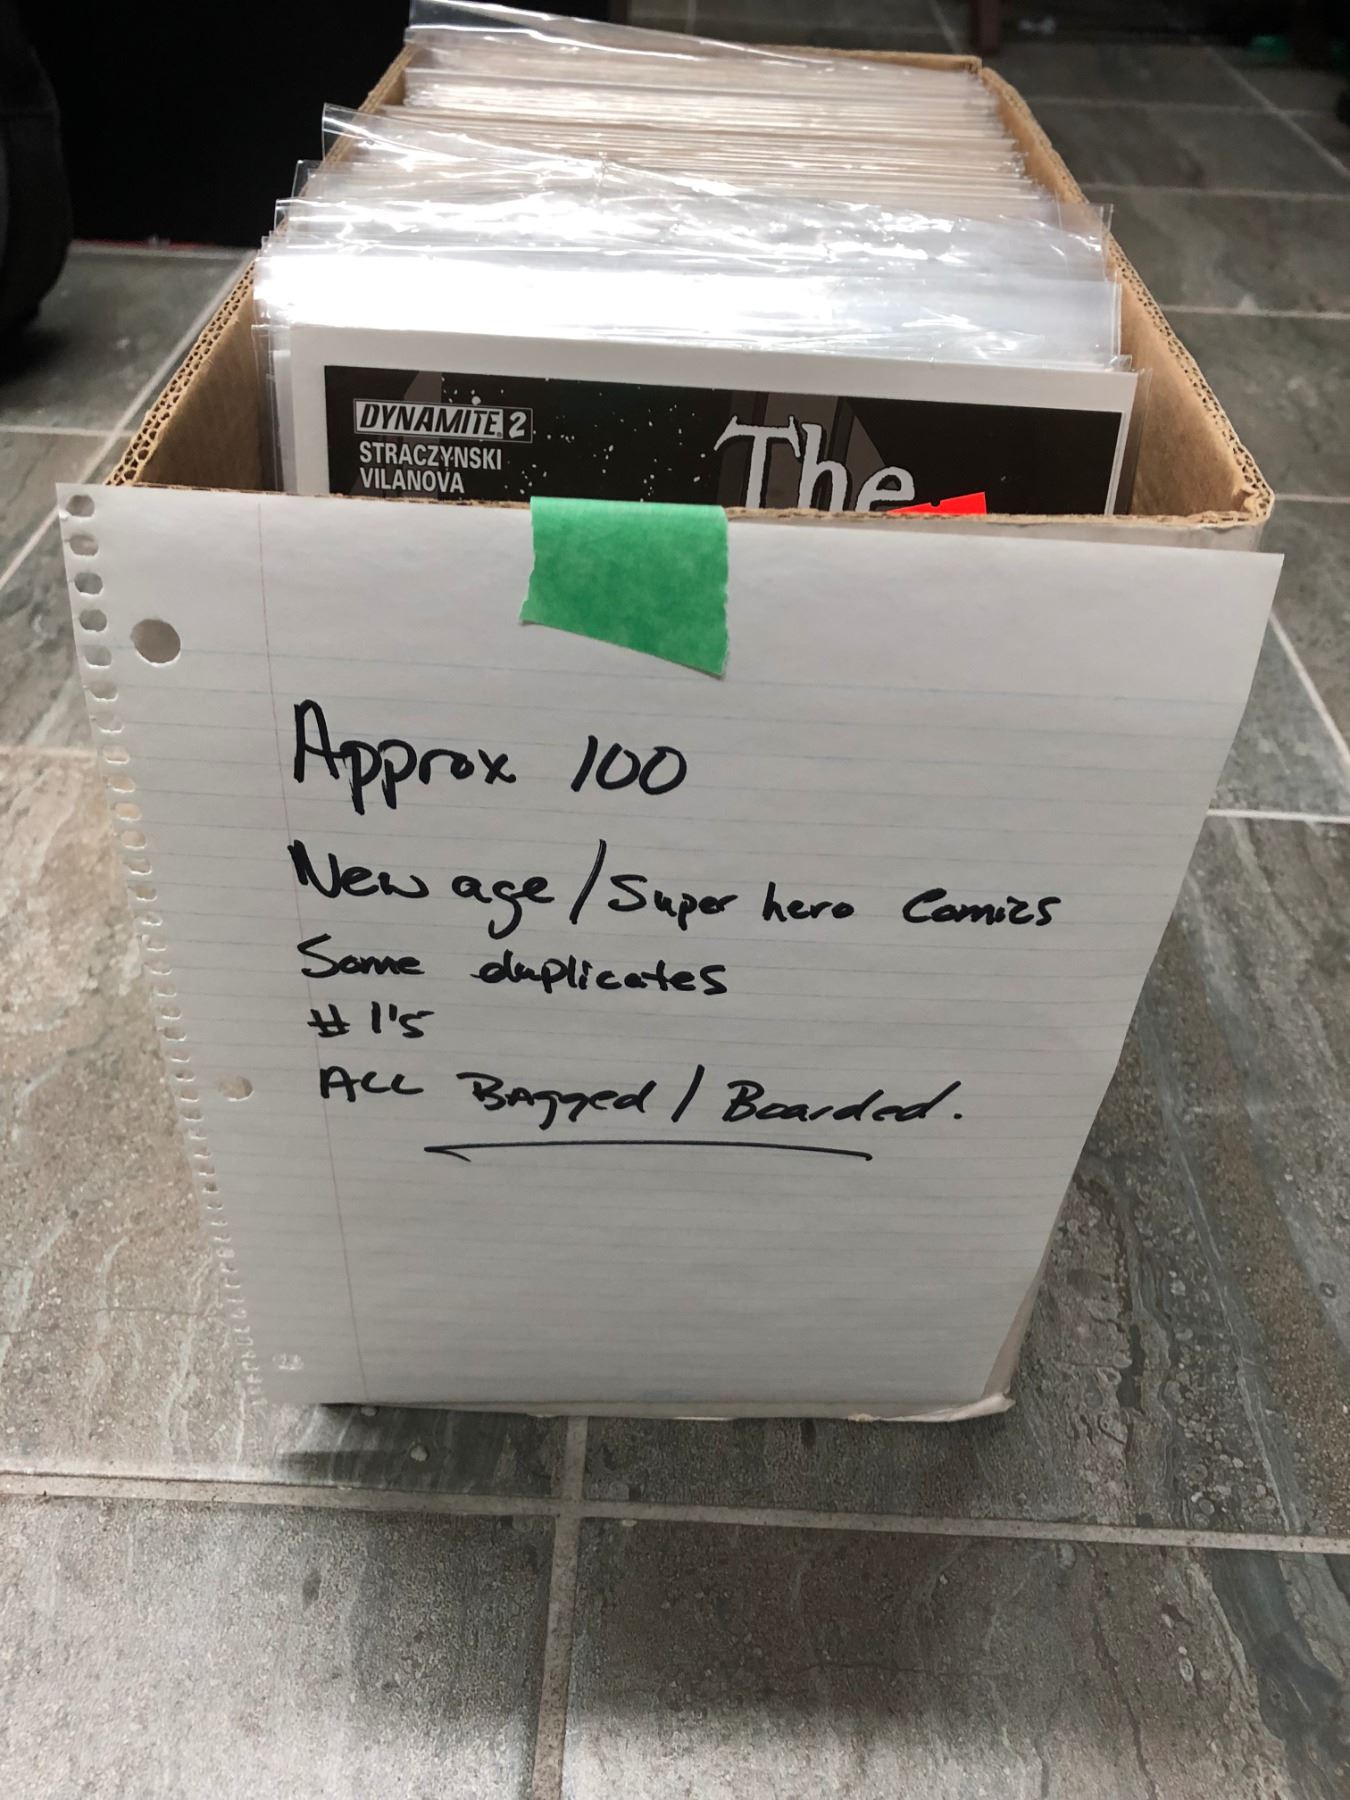 DYNAMITE 2
STRACZYNSKI
VILANOVA
The
Approx 100
New age / Super hero Comics
Some duplicates
# 1's
ALL Bagged / Boarded.